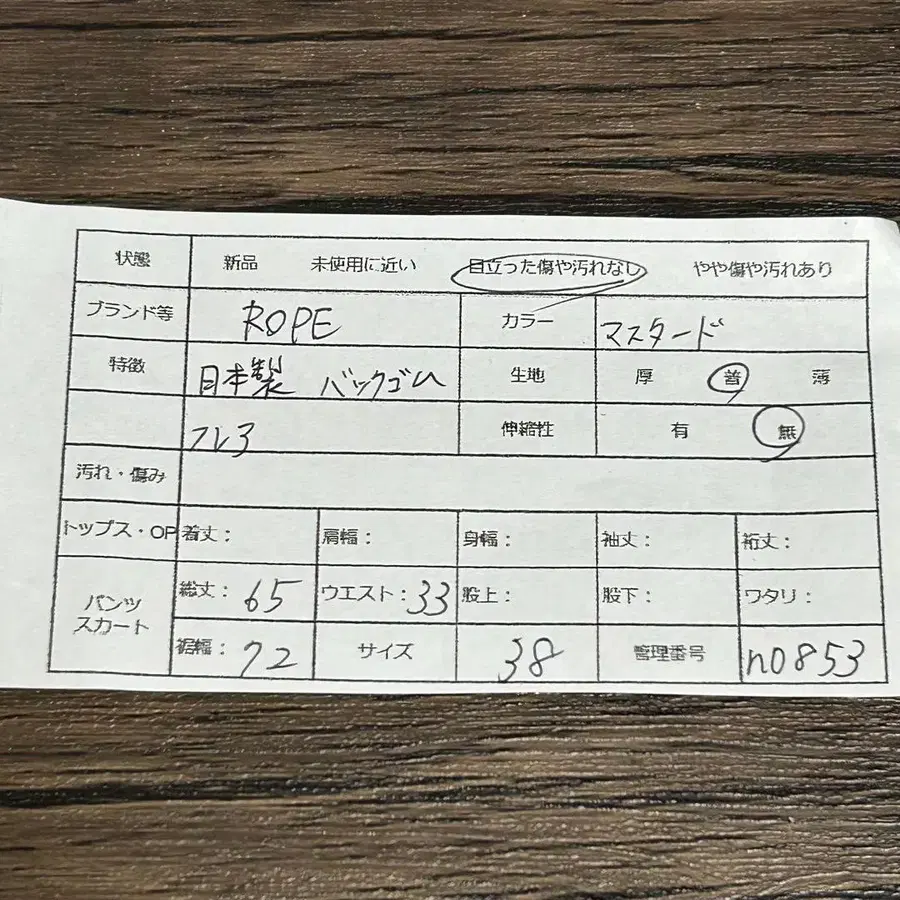 状態 新品 未使用に近い 目立った傷や汚れなし やや傷や汚れあり
ブランド等 ROPE カラー マスタード
特徴 日本製 バックゴム 生地 厚 普 薄
フレア 伸縮性 有 無
汚れ・傷み
トップス・OP 着丈： 肩幅： 身幅： 袖丈： 裄丈：
パンツ スカート 総丈：65 ウエスト：33 股上： 股下： ワタリ：
裾幅：72 サイズ 38 管理番号 n0853